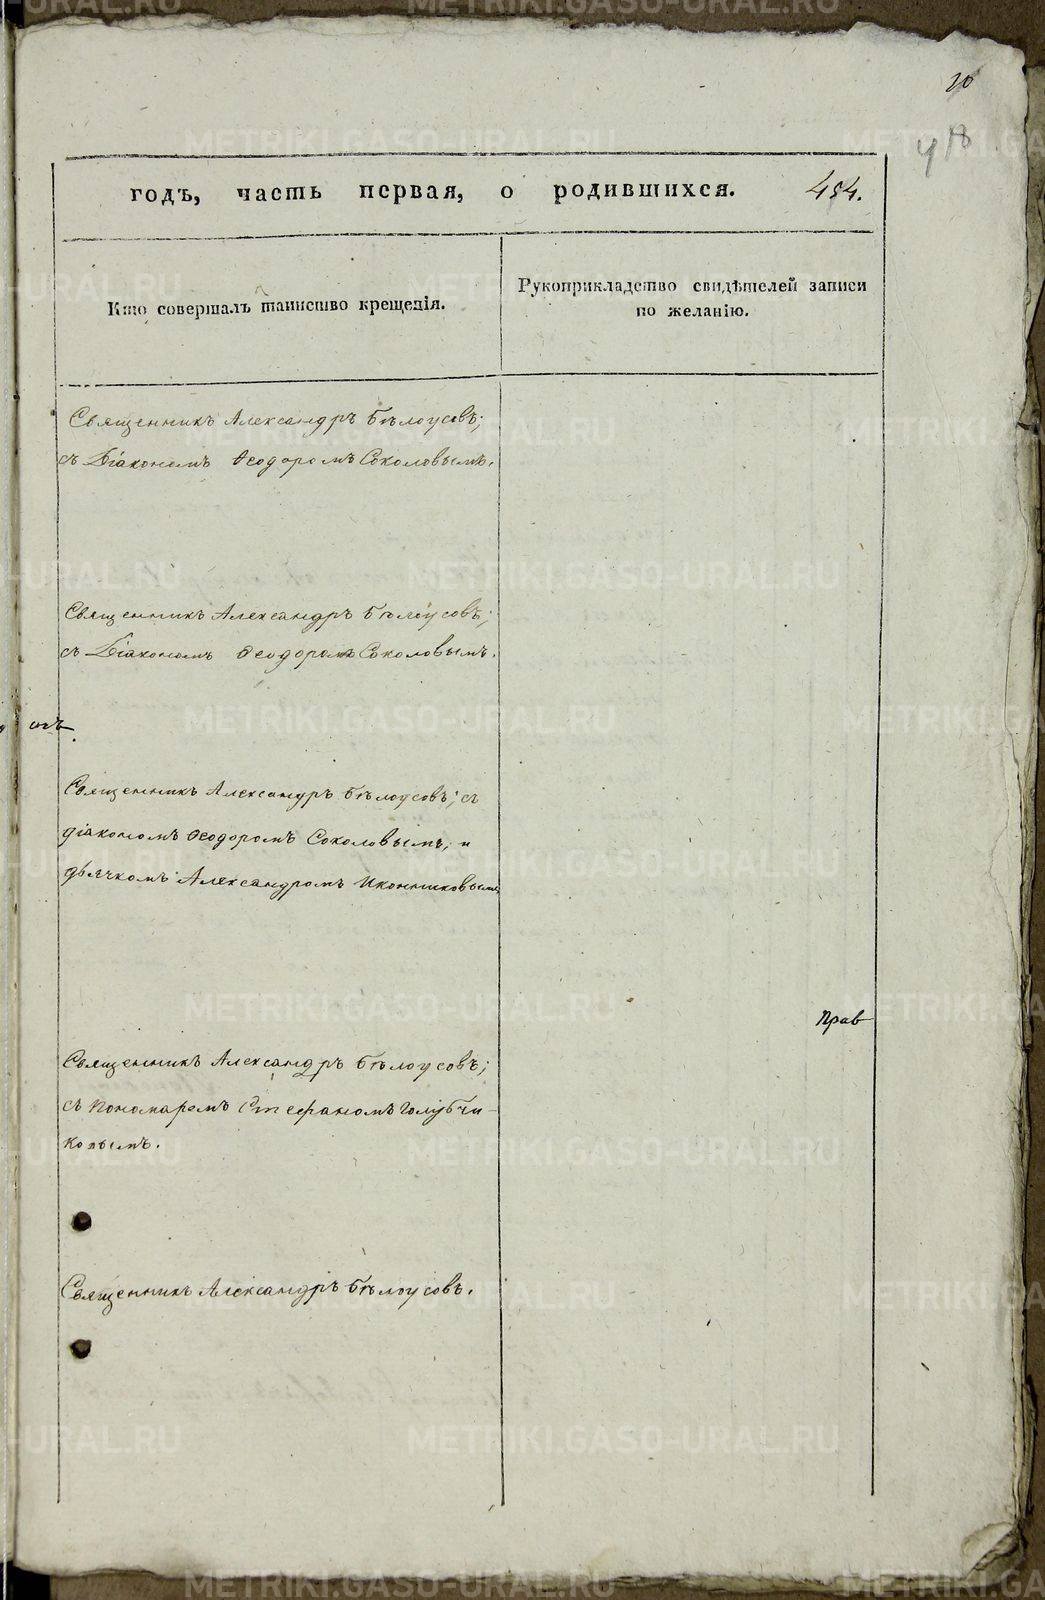 10
418
годъ, часть первая, о родившихся. 454.
Кто совершалъ таинство крещенія.
Рукоприкладство свидѣтелей записи
по желанію.
Священникъ Александръ Бѣлоусовъ;
съ Діакономъ Ѳеодоромъ Соколовымъ.
Священникъ Александръ Бѣлоусовъ;
съ Діакономъ Ѳеодоромъ Соколовымъ.
Священникъ Александръ Бѣлоусовъ; съ
діакономъ Ѳеодоромъ Соколовымъ, и
дьячкомъ Александромъ Иконниковымъ
Прав
Священникъ Александръ Бѣлоусовъ;
съ Пономаремъ Стефаномъ Голубчи-
ковымъ.
Священникъ Александръ Бѣлоусовъ.
METRIKI.GASO-URAL.RU